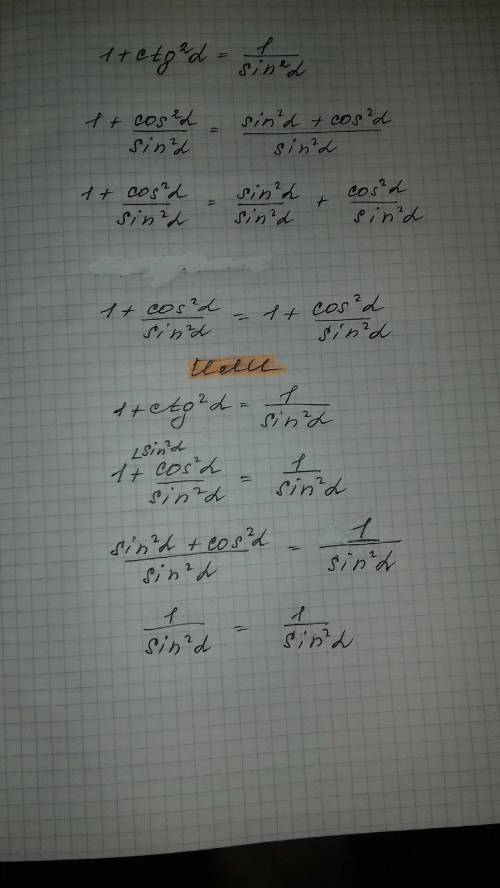 1 + ctg²α = 1/sin²α
1 + cos²α/sin²α = (sin²α + cos²α)/sin²α
1 + cos²α/sin²α = sin²α/sin²α + cos²α/sin²α
1 + cos²α/sin²α = 1 + cos²α/sin²α
или
1 + ctg²α = 1/sin²α
∠sin²α
1 + cos²α/sin²α = 1/sin²α
(sin²α + cos²α)/sin²α = 1/sin²α
1/sin²α = 1/sin²α